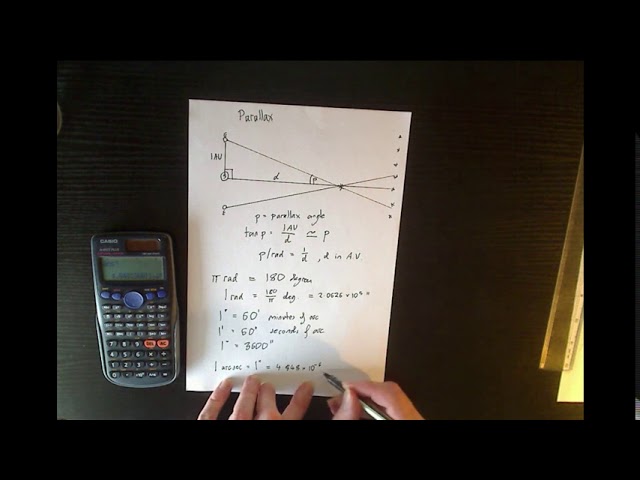 Parallax
E
1AU
d
p
E
p = parallax angle
tan p = 1AU/d ≃ p
p/rad = 1/d, d in A.U
π rad = 180 degrees
1 rad = 180/π deg. = 2.0626 × 10
1° = 60' minutes of arc
1' = 60" seconds of arc
1° = 3600"
1 arcsec = 1" = 4.848 × 10⁻⁶
CASIO